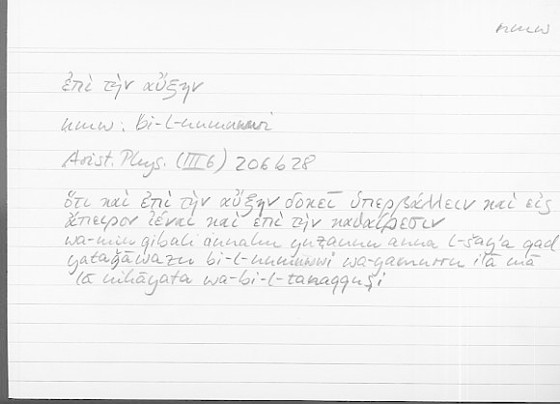 nmw
ἐπὶ τὴν αὔξην
nmw: bi-l-numuwwi
Arist. Phys. (III 6) 206b28
ὅτι καὶ ἐπὶ τὴν αὔξην δοκεῖ ὑπερβάλλειν καὶ εἰς
ἄπειρον ἰέναι καὶ ἐπὶ τὴν καθαίρεσιν
wa-min qibali annahu yuẓannu anna l-šayʾa qad
yataǧāwazu bi-l-numuwwi wa-yamurru ilā mā
lā nihāyata wa-bi-l-tanaqquṣi